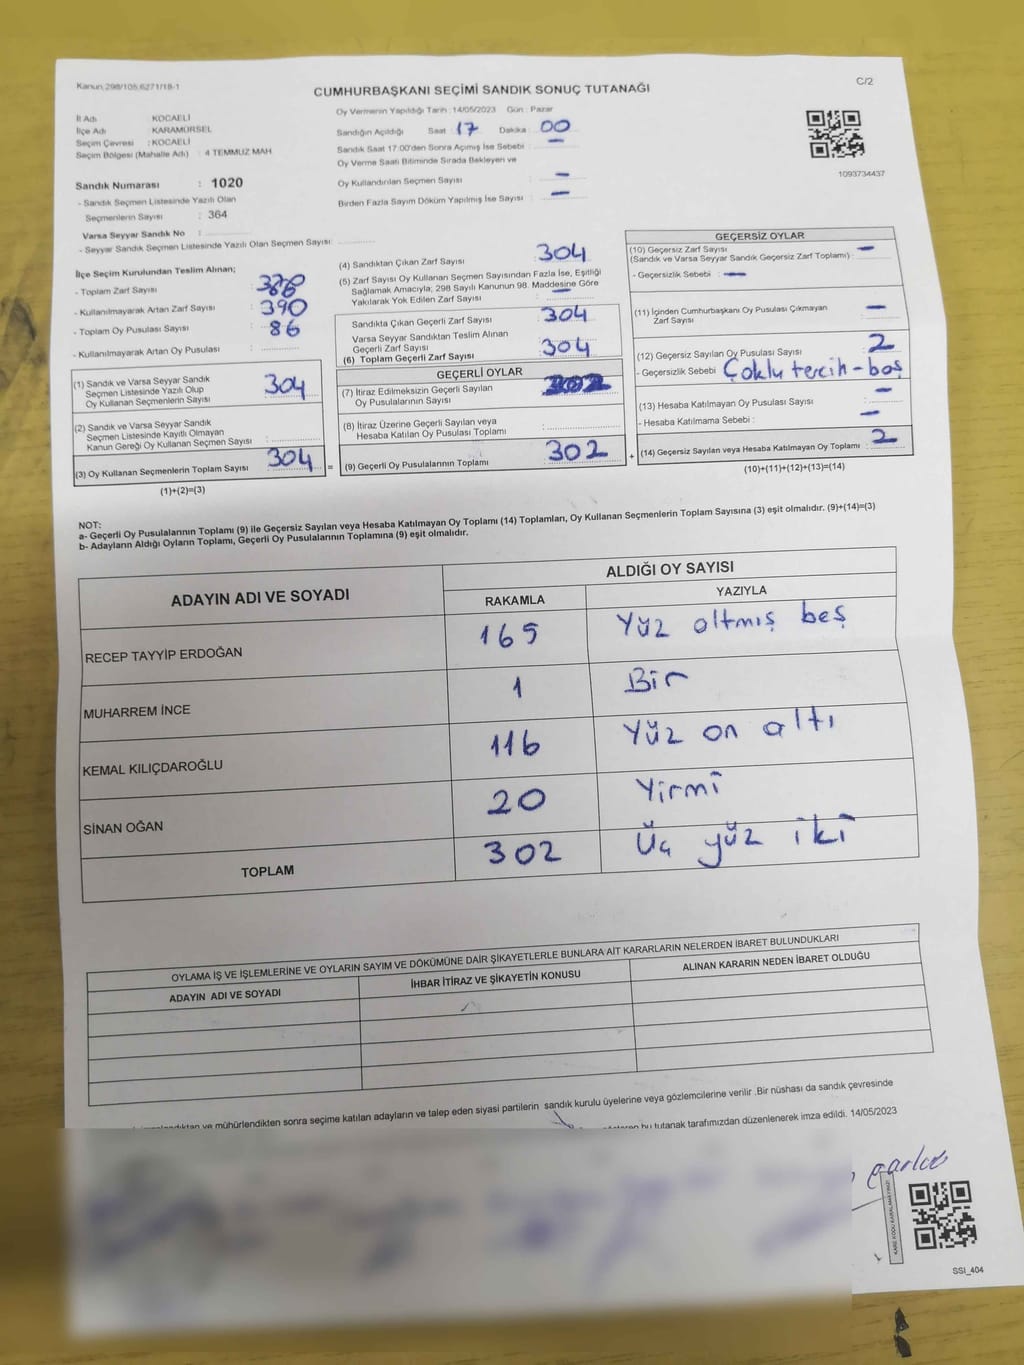 Kanun:298/105,6271/18-1
C/2
CUMHURBAŞKANI SEÇİMİ SANDIK SONUÇ TUTANAĞI
Oy Vermenin Yapıldığı Tarih : 14/05/2023 Gün : Pazar
İl Adı KOCAELİ
İlçe Adı KARAMÜRSEL
Seçim Çevresi : KOCAELİ
Seçim Bölgesi (Mahalle Adı) : 4 TEMMUZ MAH.
Sandık Numarası : 1020
- Sandık Seçmen Listesinde Yazılı Olan
Seçmenlerin Sayısı : 364
Varsa Seyyar Sandık No :
- Seyyar Sandık Seçmen Listesinde Yazılı Olan Seçmen Sayısı:
Sandığın Açıldığı Saat : 17 Dakika : 00
Sandık Saat 17:00'den Sonra Açımış İse Sebebi : —
Oy Verme Saati Bitiminde Sırada Bekleyen ve
Oy Kullandırılan Seçmen Sayısı : —
Birden Fazla Sayım Döküm Yapılmış İse Sayısı : —
1093734437
İlçe Seçim Kurulundan Teslim Alınan;
- Toplam Zarf Sayısı :
- Kullanılmayarak Artan Zarf Sayısı : 390
- Toplam Oy Pusulası Sayısı : 86
- Kullanılmayarak Artan Oy Pusulası :
(1) Sandık ve Varsa Seyyar Sandık
Seçmen Listesinde Yazılı Olup
Oy Kullanan Seçmenlerin Sayısı : 304
(2) Sandık ve Varsa Seyyar Sandık
Seçmen Listesinde Kayıtlı Olmayan
Kanun Gereği Oy Kullanan Seçmen Sayısı :
(3) Oy Kullanan Seçmenlerin Toplam Sayısı : 304
(1)+(2)=(3)
=
(4) Sandıktan Çıkan Zarf Sayısı : 304
(5) Zarf Sayısı Oy Kullanan Seçmen Sayısından Fazla İse, Eşitliği
Sağlamak Amacıyla; 298 Sayılı Kanunun 98. Maddesine Göre
Yakılarak Yok Edilen Zarf Sayısı : —
Sandıkta Çıkan Geçerli Zarf Sayısı : 304
Varsa Seyyar Sandıktan Teslim Alınan
Geçerli Zarf Sayısı :
(6) Toplam Geçerli Zarf Sayısı : 304
GEÇERLİ OYLAR
(7) İtiraz Edilmeksizin Geçerli Sayılan
Oy Pusulalarının Sayısı :
(8) İtiraz Üzerine Geçerli Sayılan veya
Hesaba Katılan Oy Pusulası Toplamı :
(9) Geçerli Oy Pusulalarının Toplamı : 302
+
GEÇERSİZ OYLAR
(10) Geçersiz Zarf Sayısı
(Sandık ve Varsa Seyyar Sandık Geçersiz Zarf Toplamı) : —
- Geçersizlik Sebebi : —
(11) İçinden Cumhurbaşkanı Oy Pusulası Çıkmayan
Zarf Sayısı : —
(12) Geçersiz Sayılan Oy Pusulası Sayısı : 2
- Geçersizlik Sebebi : Çoklu tercih-boş
(13) Hesaba Katılmayan Oy Pusulası Sayısı : —
- Hesaba Katılmama Sebebi : —
(14) Geçersiz Sayılan veya Hesaba Katılmayan Oy Toplamı : 2
(10)+(11)+(12)+(13)=(14)
NOT:
a- Geçerli Oy Pusulalarının Toplamı (9) ile Geçersiz Sayılan veya Hesaba Katılmayan Oy Toplamı (14) Toplamları, Oy Kullanan Seçmenlerin Toplam Sayısına (3) eşit olmalıdır. (9)+(14)=(3)
b- Adayların Aldığı Oyların Toplamı, Geçerli Oy Pusulalarının Toplamına (9) eşit olmalıdır.
ADAYIN ADI VE SOYADI ALDIĞI OY SAYISI
RAKAMLA YAZIYLA
RECEP TAYYİP ERDOĞAN 165 Yüz altmış beş
MUHARREM İNCE 1 Bir
KEMAL KILIÇDAROĞLU 116 Yüz on altı
SİNAN OĞAN 20 Yirmi
TOPLAM 302 Üç yüz iki
OYLAMA İŞ VE İŞLEMLERİNE VE OYLARIN SAYIM VE DÖKÜMÜNE DAİR ŞİKAYETLERLE BUNLARA AİT KARARLARIN NELERDEN İBARET BULUNDUKLARI
ADAYIN ADI VE SOYADI İHBAR İTİRAZ VE ŞİKAYETİN KONUSU ALINAN KARARIN NEDEN İBARET OLDUĞU
ve mühürlendikten sonra seçime katılan adayların ve talep eden siyasi partilerin sandık kurulu üyelerine veya gözlemcilerine verilir .Bir nüshası da sandık çevresinde
bu tutanak tarafımızdan düzenlenerek imza edildi. 14/05/2023
KARE KODU KARALAMAYINIZ!
SSI_404